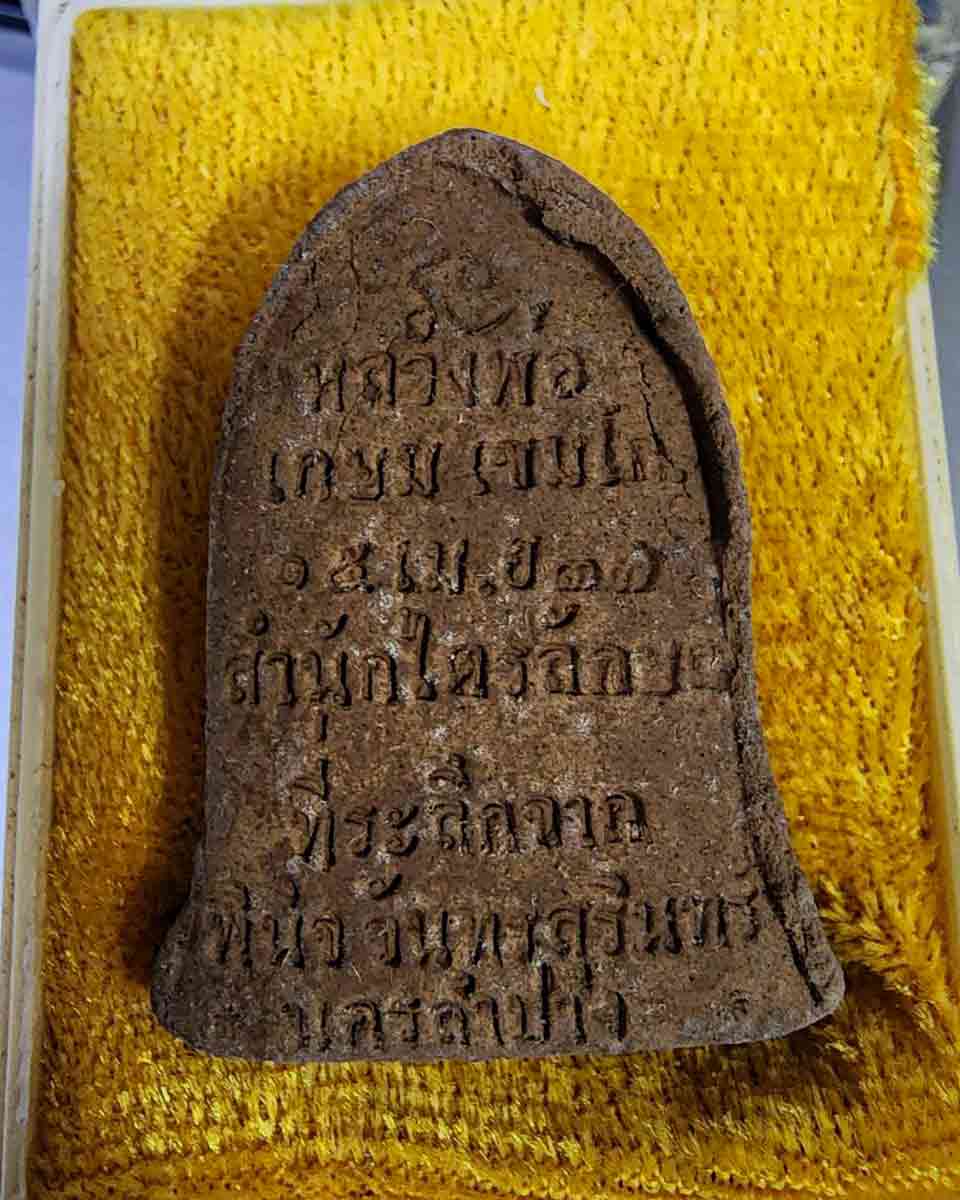 หลวงพ่อ
เกษม เขมโก
๑๕ เม.ย ๓๗
สำนักไตรลักษณ์
ที่ระลึกจาก
พินิจ จันทรสุรินทร์
นครลำปาง